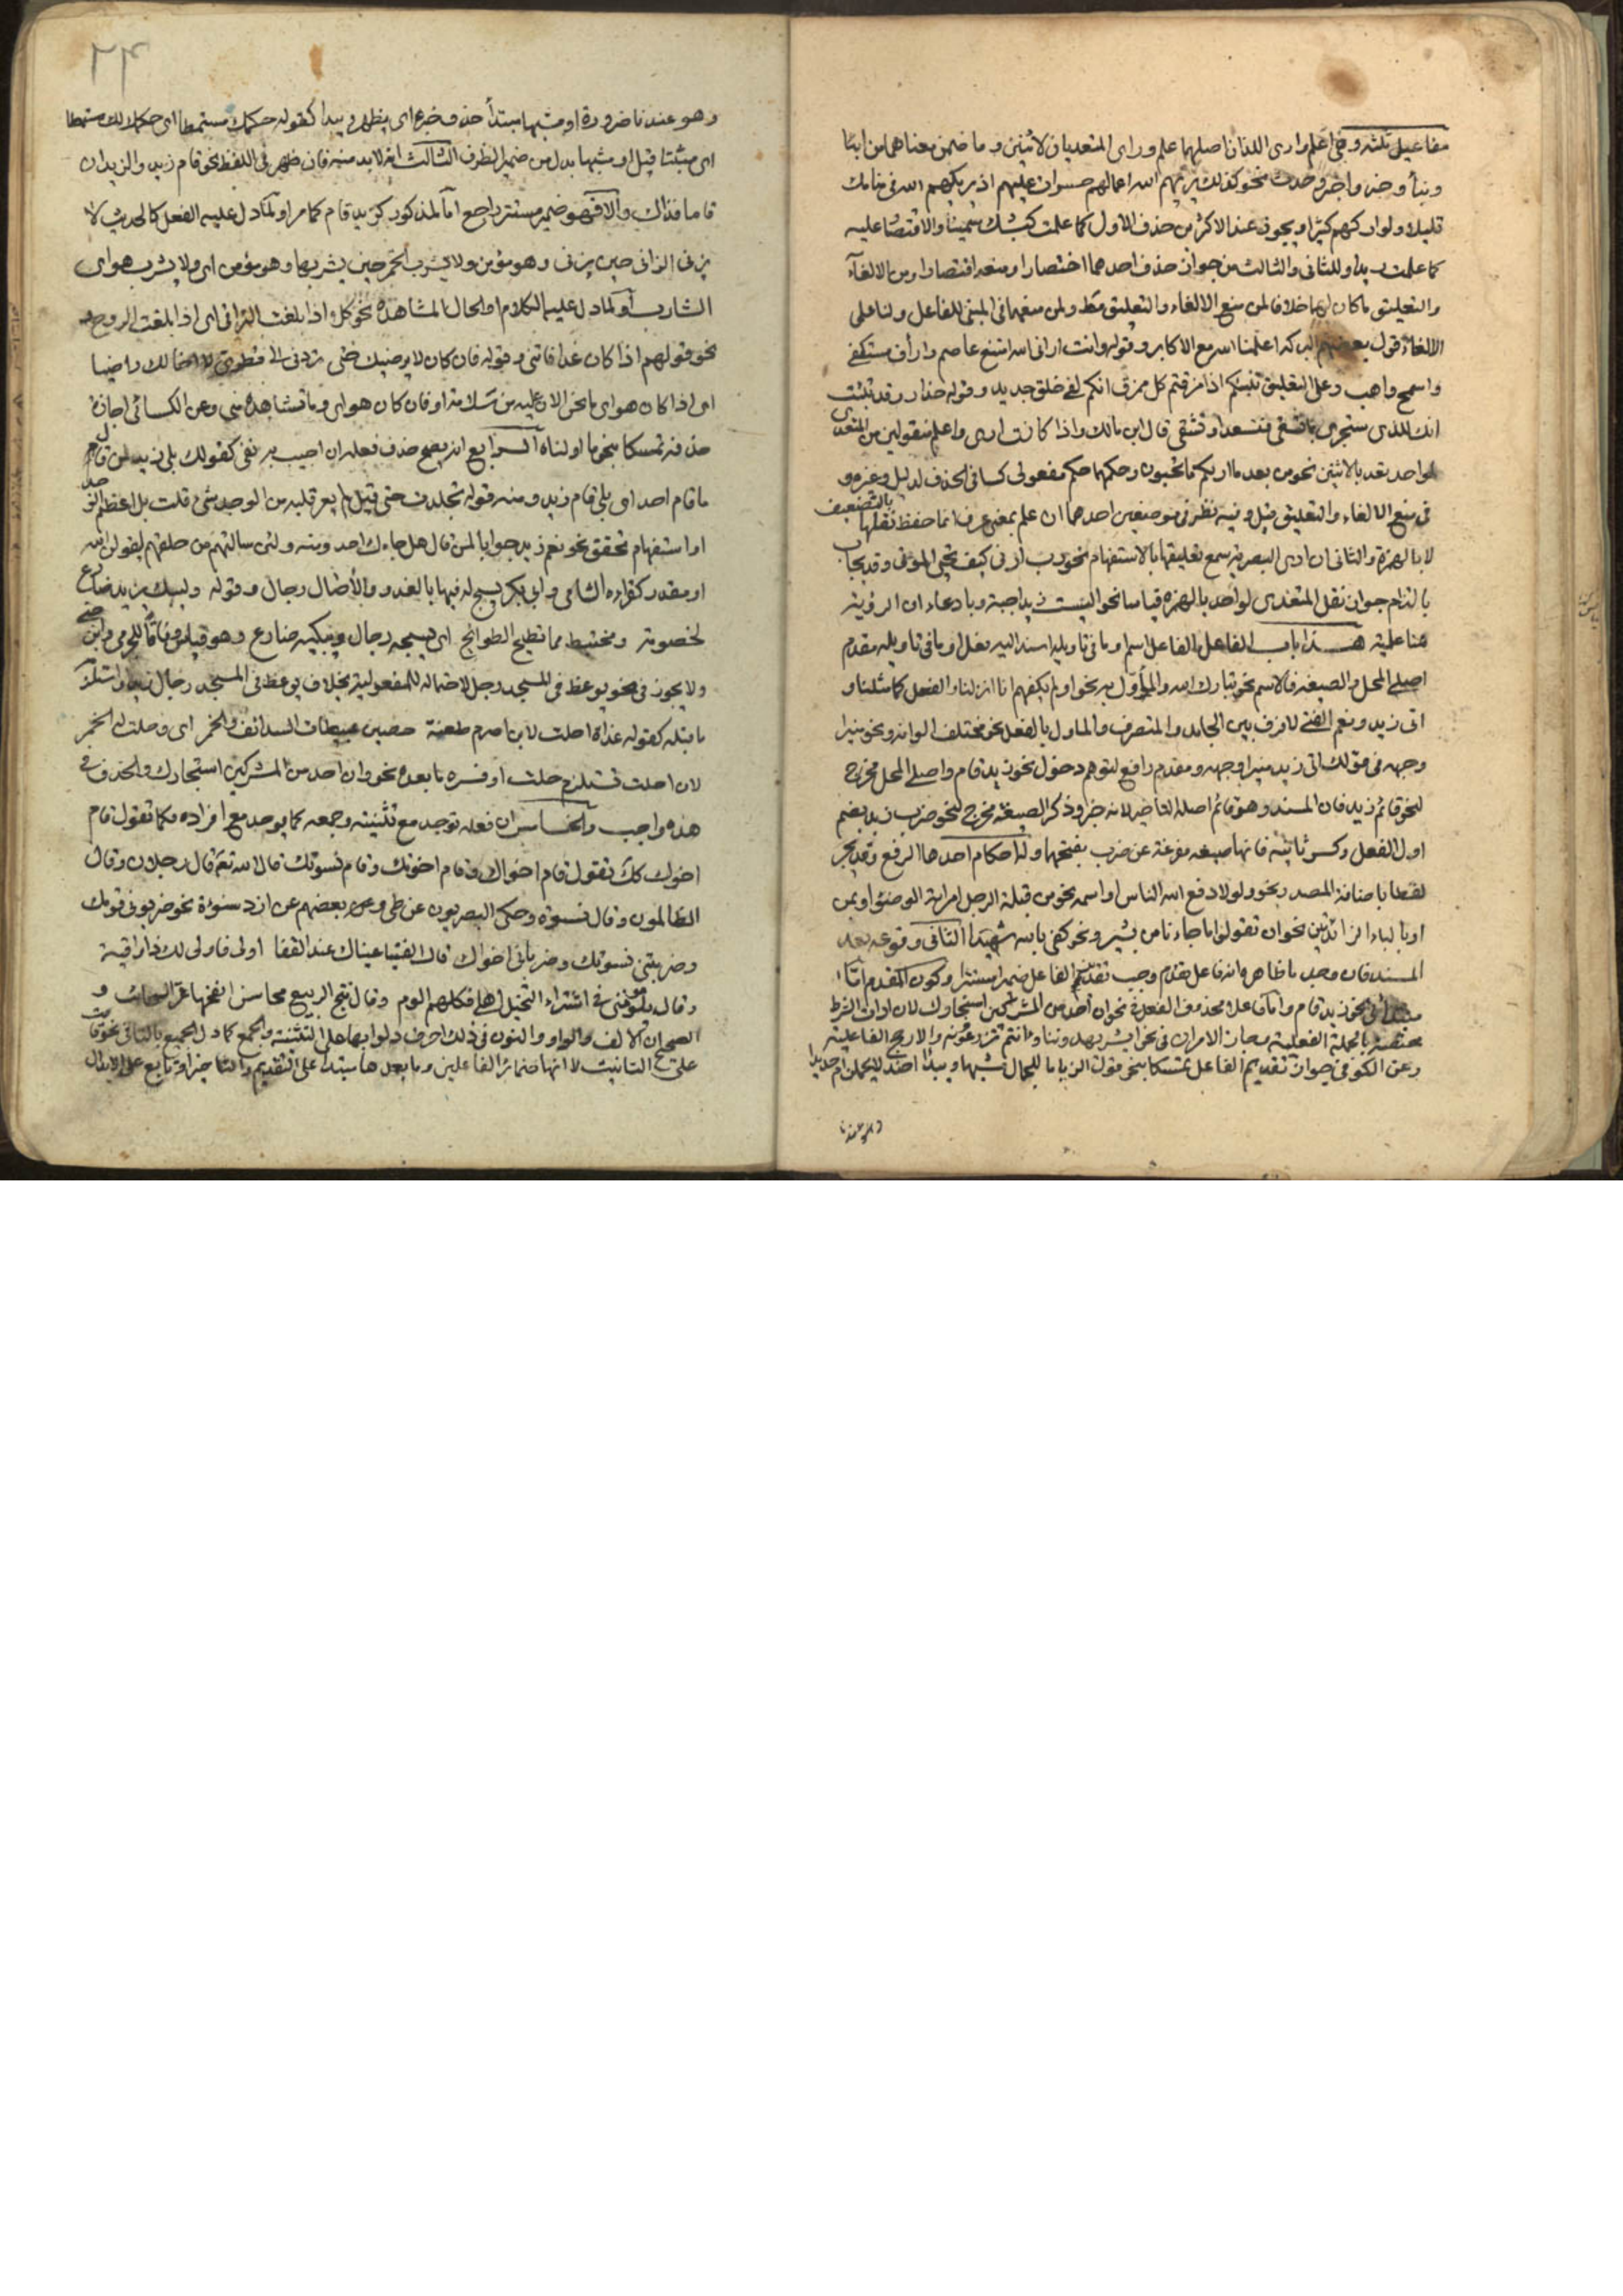 مفاعيل ثلثه وهي اعلم وارى اللذان اصلهما علم وراى المتعديان لاثنين و ما ضمن معناهما من انبأ
ونبأ وخبر واخبر وحدث نحو كذلك يريهم الله اعمالهم حسرات عليهم اذ يريكهم الله في منامك
قليلا ولو اراكهم كثيرا ويجوز عند الاكثرين حذف الاول كما علمت كبشك سمينا والاقتصار عليه
كما علمت زيدا وللثاني والثالث من جواز حذف احدهما اختصارا ومنعه اقتصارا ومن الالغاء
والتعليق ما كان لهما خلافا لمن منع الالغاء والتعليق مط ولمن منعهما في المبني للفاعل ولنا على
الالغاء قول بعضهم البركة اعلمنا الله مع الاكابر وقوله وانت اراني الله امنع عاصم وارأف مستكفى
واسمح واهب وعلى التعليق ينبئكم اذا مزقتم كل ممزق انكم لفي خلق جديد وقوله حذار فقد نبئت
انك للذى ستجزى بما تسعى فتسعد او تشقى قال ابن مالك واذا كانت ارى واعلم منقولين من المتعدى
لواحد تعديا لاثنين نحو من بعد ما اريكم ما تحبون وحكمهما حكم مفعولى كسا في الحذف لدليل وغيره و
في منع الالغاء والتعليق قيل وفيه نظر في موضعين احدهما ان علم بمعنى عرف انما حفظ نقلها بالتضعيف
لا بالهمزة والثاني ان ارى البصرية سمع تعليقها بالاستفهام نحو رب ارنى كيف تحيى الموتى وقد يجاب
بالتزام جواز نقل المتعدى لواحد بالهمزة قياسا نحو البست زيدا جبة وبادعاء ان الرؤية
هنا علمية هذا باب الفاعل الفاعل اسم او ما في تاويله اسند اليه فعل او ما في تاويله مقدم
اصلى المحل والصيغة فالاسم نحو تبارك الله والمأول به نحو اولم يكفهم انا انزلنا والفعل كما مثلنا و
اتى زيد ونعم الفتى لا فرق بين الجامد والمتصرف والماول بالفعل نحو مختلف الوانه ونحو منيرا
وجهه في قولك اتى زيد منيرا وجهه ومقدم رافع لتوهم دخول نحو زيد قام واصلى المحل مخرج
لنحو قائم زيد فان المسند وهو قائم اصله التاخير لانه خبر وذكر الصيغة مخرج لنحو ضرب زيد بضم
اول الفعل وكسر ثانيه فانها صيغه مفرعة عن ضرب بفتحهما وله احكام احدها الرفع وقد يجر
لفظا باضافة المصدر نحو ولولا دفع الله الناس او اسمه نحو من قبلة الرجل امراته الوضوء او بمن
او بالباء الزائدتين نحو ان تقولوا ما جاءنا من بشير ونحو كفى بالله شهيدا الثاني وقوعه بعد
المسند فان وجد ما ظاهره انه فاعل مقدم وجب تقدير الفاعل ضميرا مستترا وكون المقدم اما
مبتدأ في نحو زيد قام واما فاعلا محذوف الفعل في نحو ان احد من المشركين استجارك لان اداة الشرط
مختصة بالجملة الفعلية وجاز الامران في نحو ابشر يهدوننا وءانتم تخلقونه والارجح الفاعلية
وعن الكوفى جواز تقديم الفاعل تمسكا بنحو قول الزباء ما للجمال مشيها وئيدا اجندلا يحملن ام حديدا
وهو عندنا
٢٤
وهو عندنا ضرورة او مشيها مبتدأ حذف خبره اى يظهر وئيدا كقوله حكمك مسمطا اى حكمك لك مسمطا
اى مثبتا قيل او مشيها بدل من ضمير الظرف الثالث انه لابد منه فان ظهر في اللفظ نحو قام زيد والزيدان
قاما فذاك والا فهو ضمير مستتر راجع اما لمذكور كزيد قام كما مر او لما دل عليه الفعل كالحديث لا
يزني الزاني حين يزني وهو مؤمن ولا يشرب الخمر حين يشربها وهو مؤمن اى ولا يشرب هو اى
الشارب او لما دل عليه الكلام او الحال المشاهدة نحو كلا اذا بلغت التراقى اى اذا بلغت الروح و
نحو قولهم اذا كان غدا فاتني وقوله فان كان لا يرضيك حتى تردني الى قطرى لا اخالك راضيا
اى اذا كان هو اى ما نحن الان عليه من سلامة او فان كان هو اى ما تشاهده منى وعن الكسائى اجازة
حذفه تمسكا بنحو ما اولناه الرابع انه يصح حذف فعله ان اجيب به نفى كقولك بلى زيد لمن قال
ما قام احد اى بلى قام زيد ومنه قوله تجلدت حتى قيل لم يعر قلبه من الوجد شئ قلت بل اعظم الوجد
او استفهام محقق نحو نعم زيد جوابا لمن قال هل جاءك احد ومنه ولئن سالتهم من خلقهم ليقولن الله
او مقدر كقراءة الشامى وابى بكر يسبح له فيها بالغدو والآصال رجال وقوله وليبك يزيد ضارع
لخصومة ومختبط مما تطيح الطوائح اى يسبحه رجال ويبكيه ضارع وهو قياس وفاقا للجرمى وابن جنى
ولا يجوز في نحو يوعظ في المسجد رجل لاحتماله للمفعولية بخلاف يوعظ في المسجد رجال زيد او استلزمه
ما قبله كقوله غداة احلت لابن اصرم طعنة حصين عبيطات السدائف والخمر اى وحلت له الخمر
لان احلت تستلزم حلت او فسره ما بعده نحو وان احد من المشركين استجارك والحذف في
هذه واجب والخامس ان فعله توحد مع تثنيته وجمعه كما يوحد مع افراده فكما تقول قام
اخوك كك تقول قام اخواك وقام اخوتك وقام نسوتك قال الله تع قال رجلان وقال
الظالمون وقال نسوة وحكى البصريون عن طى وبعضهم عن ازد شنوءة نحو ضربونى قومك
وضربننى نسوتك وضربانى اخواك قال الفيتا عيناك عند القفا اولى فاولى لك ذا واقية
وقال يلوموننى في اشتراء النخيل اهلى فكلهم الوم وقال نتج الربيع محاسنا القحنها غر السحائب و
الصحيح ان الالف والواو والنون في ذلك احرف دلوا بها على التثنية والجمع كما دل الجميع بالتاء في نحو قامت
على التانيث لا انها ضمائر الفاعلين وما بعدها مبتدأ على التقديم والتاخير او تابع على الابدال